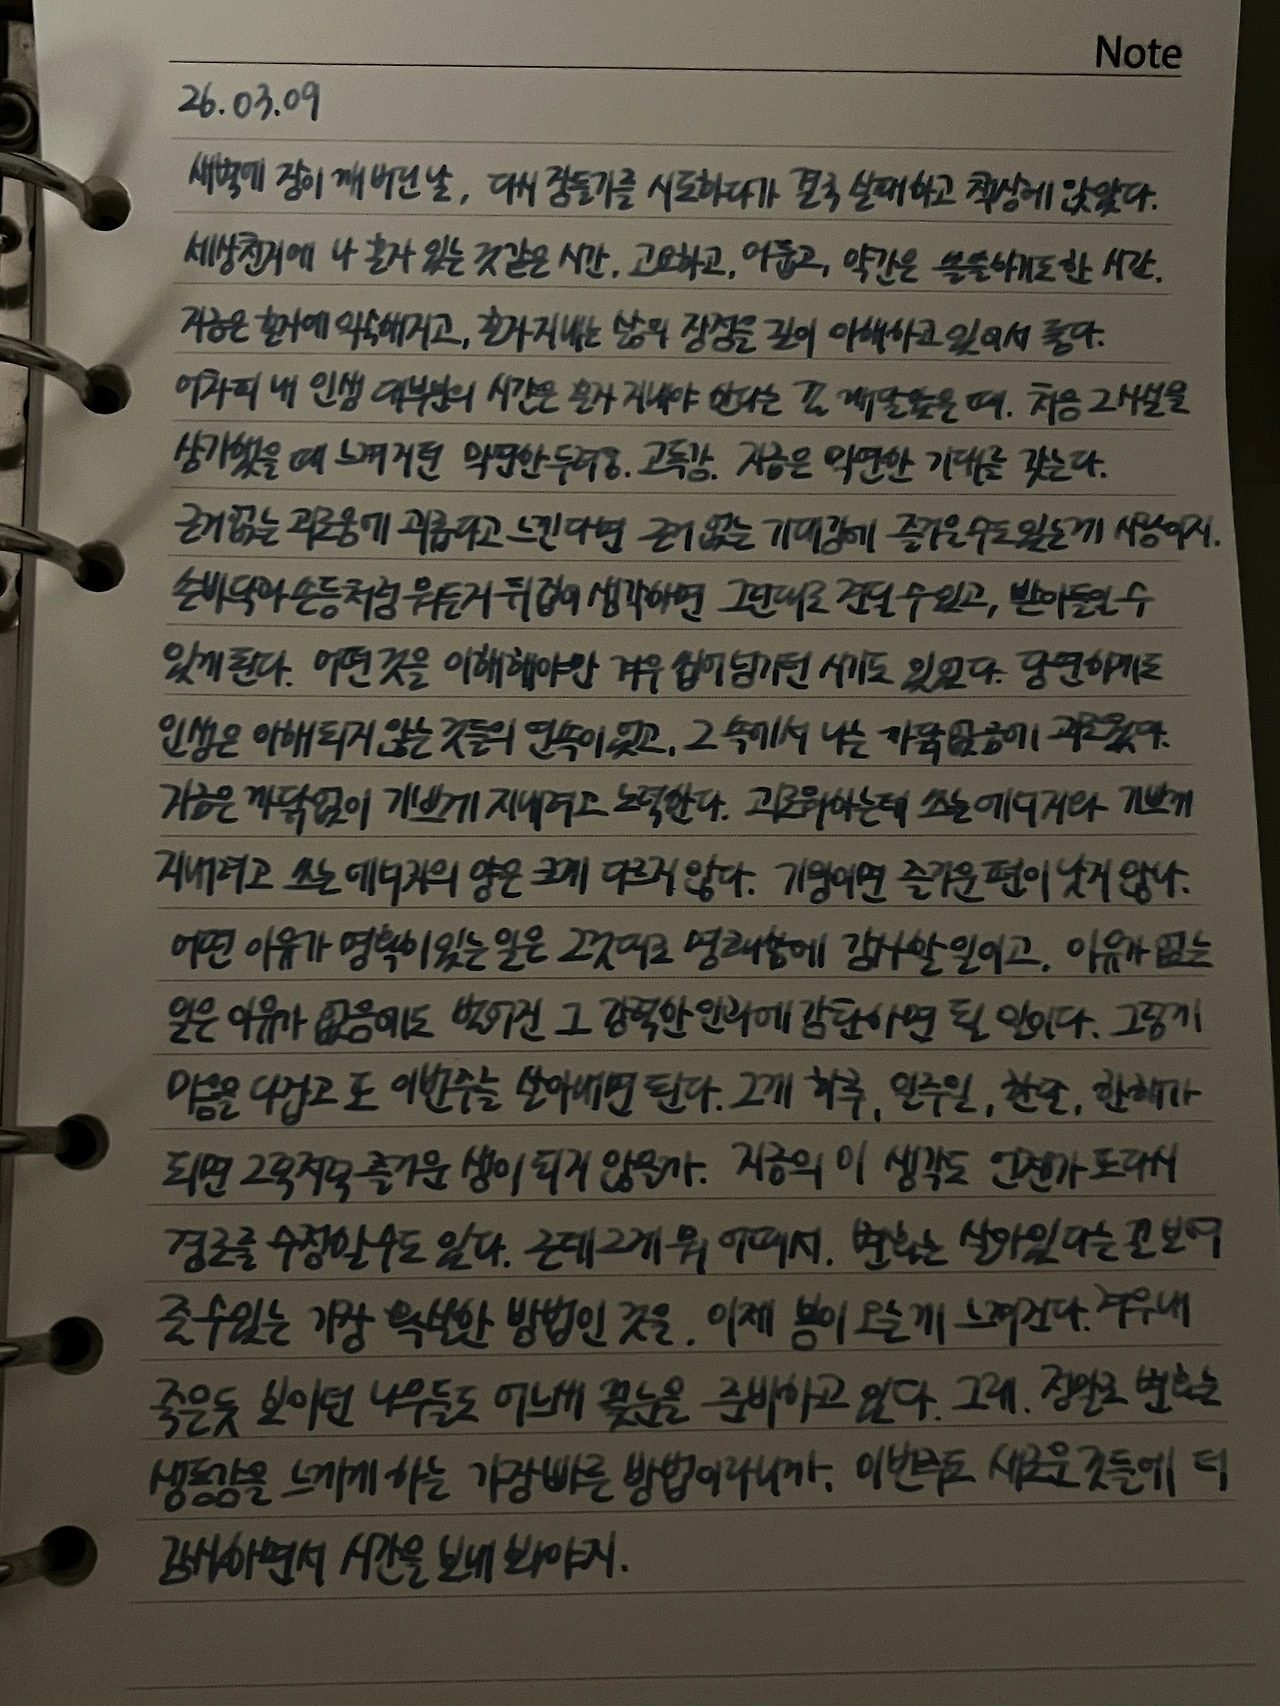 Note
26.03.09
새벽에 잠이 깨 버린 날, 다시 잠들기를 시도하다가 결국 실패하고 책상에 앉았다.
세상천지에 나 혼자 있는 것 같은 시간. 고요하고, 어둡고, 약간은 쓸쓸하기도 한 시간.
지금은 혼자에 익숙해지고, 혼자 지내는 삶의 장점을 깊이 이해하고 있어서 좋다.
어차피 내 인생 대부분의 시간은 혼자 지내야 한다는 걸 깨달았을 때. 처음 그 사실을
상기했을 때 느껴지던 막연한 두려움. 고독감. 지금은 막연한 기대를 갖는다.
근거 없는 괴로움에 괴롭다고 느낀다면 근거 없는 기대감에 즐거울 수도 있는 게 사람이지.
손바닥과 손등처럼 뭐든지 뒤집어 생각하면 그런대로 견딜 수 있고, 받아들일 수
있게 된다. 어떤 것을 이해해야만 겨우 집어 넘기던 시기도 있었다. 당연하게도
인생은 이해되지 않는 것들의 연속이었고, 그 속에서 나는 까닭 없음에 괴로웠다.
지금은 까닭 없이 기쁘게 지내려고 노력한다. 괴로워하는데 쓰는 에너지와 기쁘게
지내려고 쓰는 에너지의 양은 크게 다르지 않다. 기왕이면 즐거운 편이 낫지 않나.
어떤 이유가 명확히 있는 일은 그것대로 명료함에 감사할 일이고, 이유가 없는
일은 이유가 없음에도 벌어진 그 강력한 인과에 감탄하면 될 일이다. 그렇게
마음을 다잡고 또 이번주를 살아내면 된다. 그게 하루, 일주일, 한달, 한해가
되면 그럭저럭 즐거운 생이 되지 않을까. 지금의 이 생각도 언젠가 또다시
경로를 수정할 수도 있다. 근데 그게 뭐 어때서. 변화는 살아있다는 걸 보여
줄 수 있는 가장 확실한 방법인 것을. 이제 봄이 오는 게 느껴진다. 겨우내
죽은듯 보이던 나무들도 어느새 꽃눈을 준비하고 있다. 그래. 정말로 변화는
생동감을 느끼게 하는 가장 빠른 방법이라니까. 이번주도 새로운 것들에 더
감사하면서 시간을 보내 봐야지.